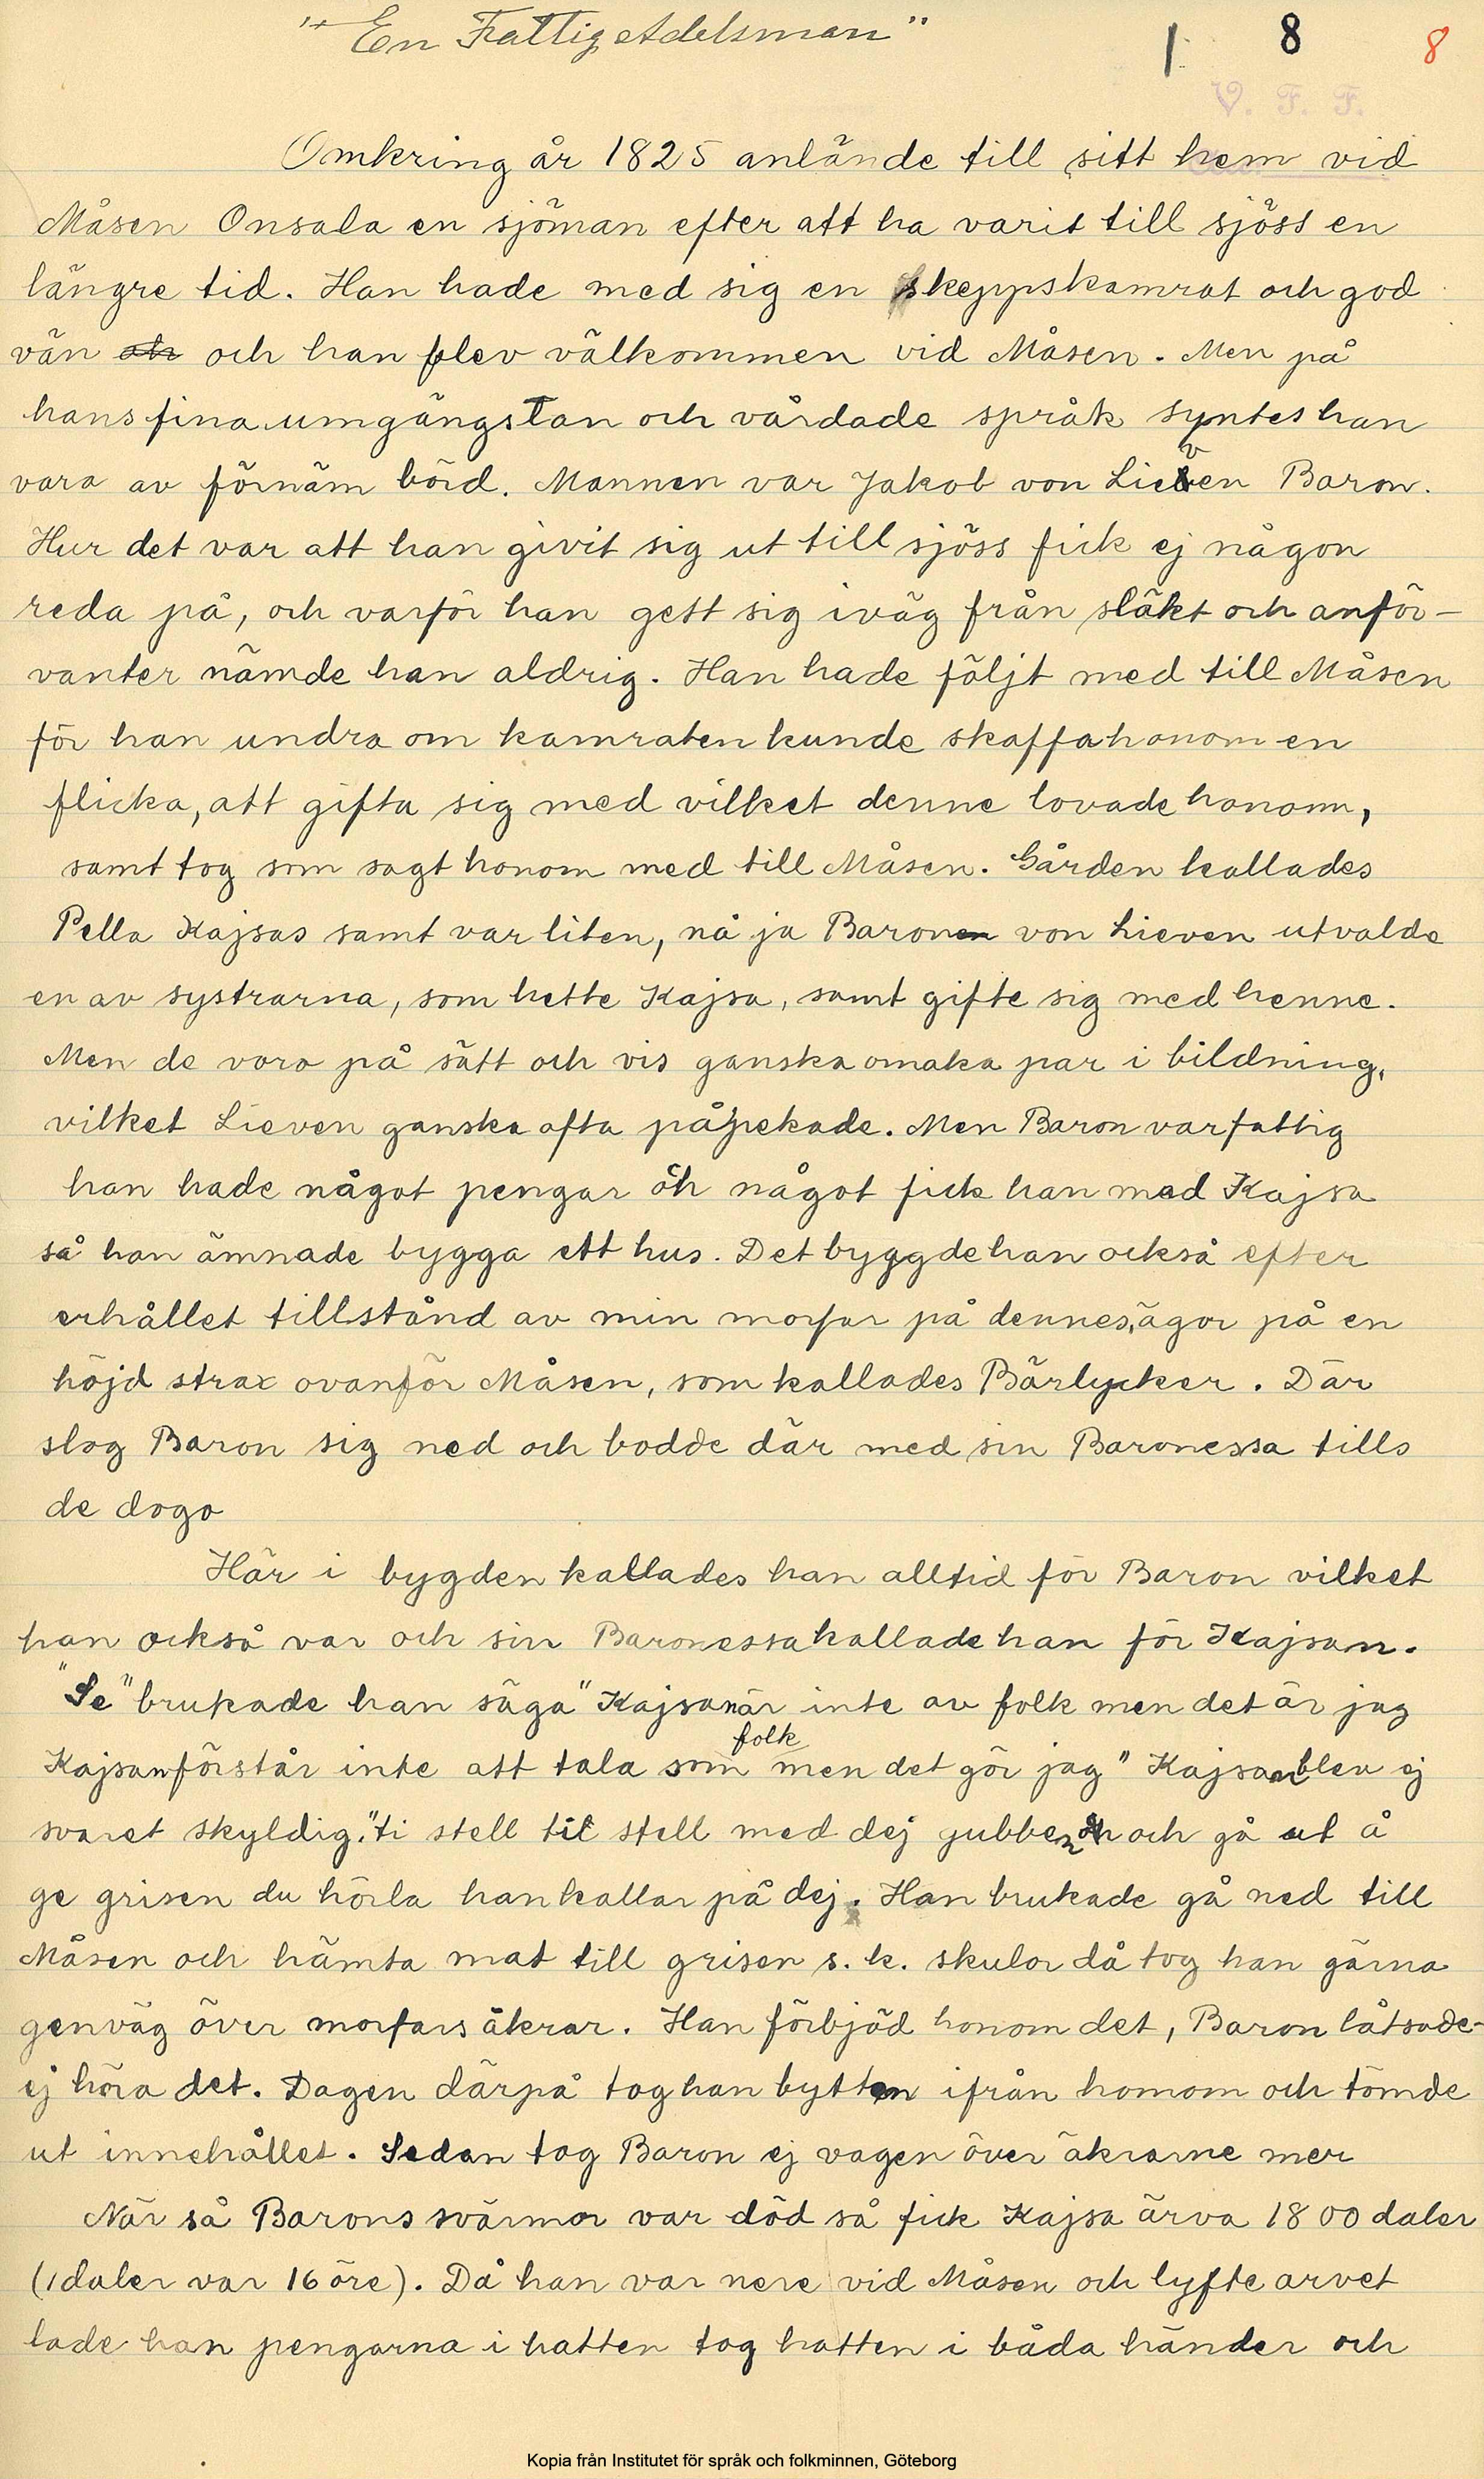 "En Fattig Adelsman"
1. 8 8
V. F. F.
Omkring år 1825 anlände till sitt hem vid
Måsen Onsala en sjöman efter att ha varit till sjöss en
längre tid. Han hade med sig en skeppskamrat och god
vän och han blev välkommen vid Måsen. Men på
hans fina umgängstan och vårdade språk syntes han
vara av förnäm börd. Mannen var Jakob von Lieven Baron.
Hur det var att han givit sig ut till sjöss fick ej någon
reda på, och varför han gett sig iväg från släkt och anför-
vanter nämde han aldrig. Han hade följt med till Måsen
för han undra om kamraten kunde skaffa honom en
flicka, att gifta sig med vilket denne lovade honom,
samt tog som sagt honom med till Måsen. Gården kallades
Pella Kajsas samt var liten, nå ja Baron von Lieven utvalde
en av systrarna, som hette Kajsa, samt gifte sig med henne.
Men de voro på sätt och vis ganska omaka par i bildning,
vilket Lieven ganska ofta påpekade. Men Baron var fattig
han hade något pengar och något fick han med Kajsa
så han ämnade bygga ett hus. Det byggde han också efter
erhållet tillstånd av min morfar på dennes ägor på en
höjd strax ovanför Måsen, som kallades Bärlycker. Där
slog Baron sig ned och bodde där med sin Baronessa tills
de dogo
Här i bygden kallades han alltid för Baron vilket
han också var och sin Baronessa kallade han för Kajsan.
"Se" brukade han säga "Kajsan är inte av folk men det är jag
Kajsan förstår inte att tala som folk men det gör jag" Kajsan blev ej
svaret skyldig. "ti stell til stell med dej gubben och gå ut å
ge grisen du hörla han kallar på dej. Han brukade gå ned till
Måsen och hämta mat till grisen s. k. skulor då tog han gärna
genväg över morfars åkrar. Han förbjöd honom det, Baron låtsade-
ej höra det. Dagen därpå tog han bytten ifrån homom och tömde
ut innehållet. Sedan tog Baron ej vagen över åkrarne mer
När så Barons svärmor var död så fick Kajsa ärva 1800 daler
(1 daler var 16 öre). Då han var nere vid Måsen och lyfte arvet
lade han pengarna i hatten tog hatten i båda händer och
Kopia från Institutet för språk och folkminnen, Göteborg